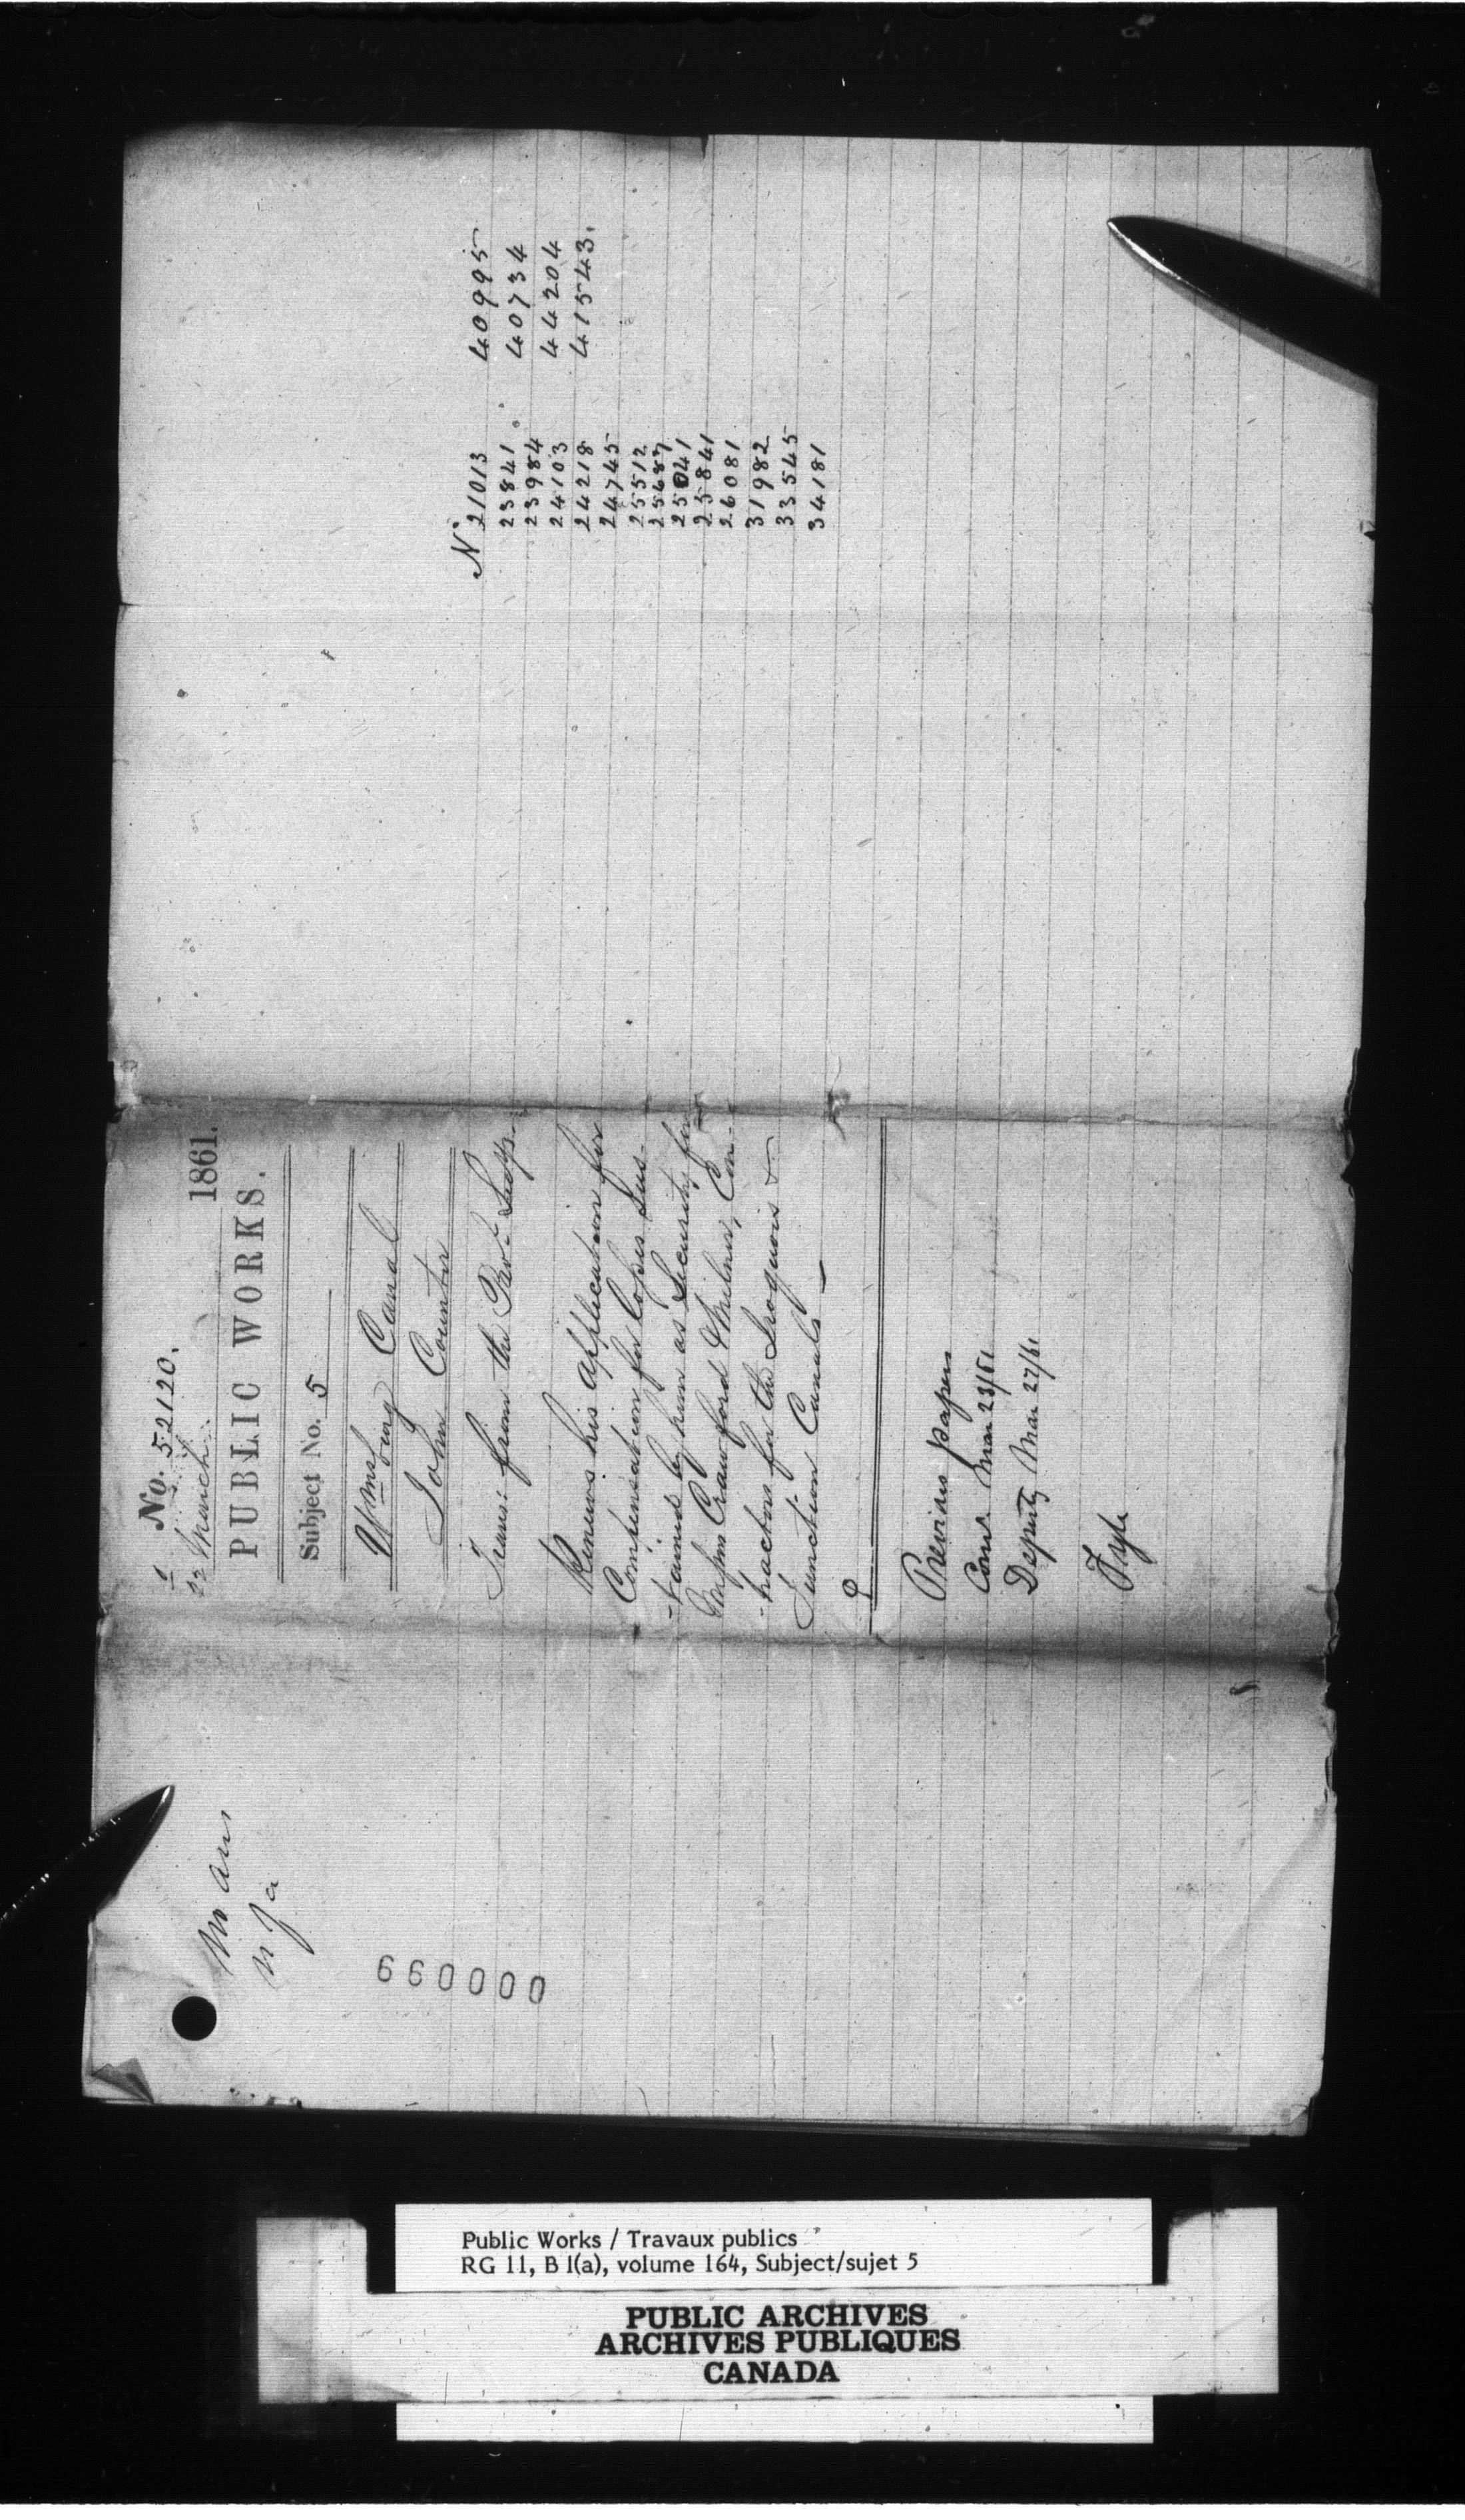 1 No. 52120.
22 March 1861.
PUBLIC WORKS.
Subject No. 5
Wmsburg Canal
John Counter
Trans: from the Prov: Secy.
Renews his application for
Compensation for losses sus-
-tained by him as Security for
Messrs Crawford & Milner, Con-
-tractors for the Iroquois &
Junction Canals —
Previous papers
Comr Mar 23/61
Deputy Mar 27/61
Fyle
No 21013
23841
23984
24103
24218
24745
25512
25687
25041
25841
26081
31982
33545
34181
40995
40734
44204
41543.
000099
Public Works / Travaux publics
RG 11, B 1(a), volume 164, Subject/sujet 5
PUBLIC ARCHIVES
ARCHIVES PUBLIQUES
CANADA